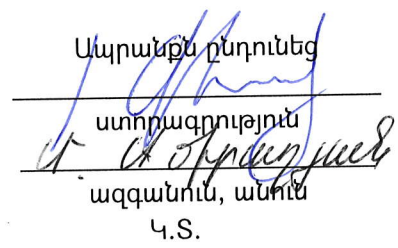 Ապրանքն ընդունեց
ստորագրություն
ազգանուն, անուն
Կ.Տ.